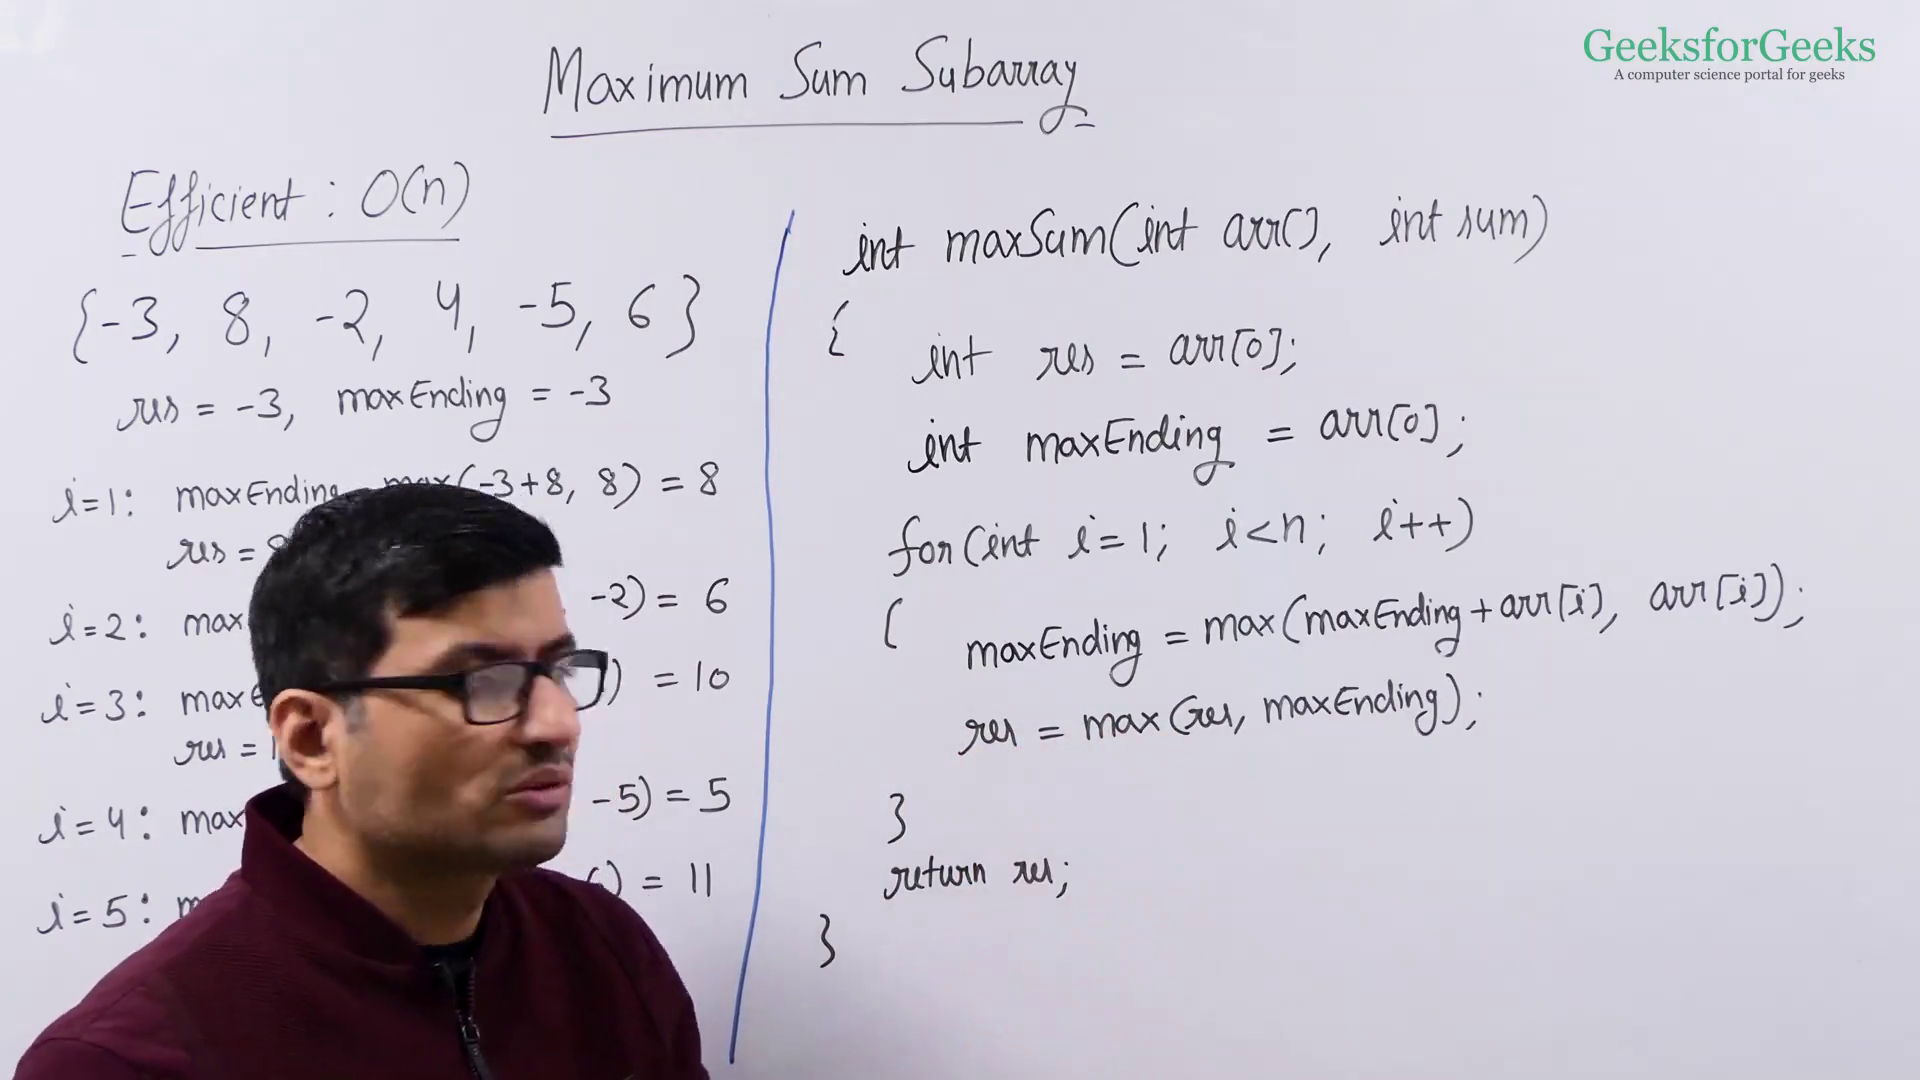 GeeksforGeeks
A computer science portal for geeks
Maximum Sum Subarray
Efficient : O(n)
{-3, 8, -2, 4, -5, 6}
res = -3, maxEnding = -3
i=1: maxEnding max(-3+8, 8) = 8
res =
i=2: -2) = 6
i=3: ) = 10
res =
i=4: -5) = 5
i=5: ) = 11
int maxSum(int arr[], int sum)
{
int res = arr[0];
int maxEnding = arr[0];
for(int i=1; i<n; i++)
{
maxEnding = max(maxEnding+arr[i], arr[i]);
res = max(res, maxEnding);
}
return res;
}